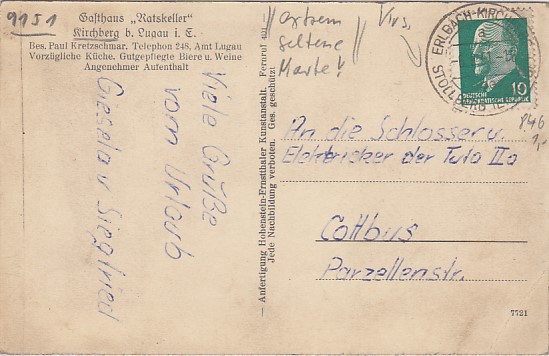 9151
Gasthaus „Ratskeller“
Kirchberg b. Lugau i. E.
Bes. Paul Kretzschmar. Telephon 248, Amt Lugau
Vorzügliche Küche. Gutgepflegte Biere u. Weine
Angenehmer Aufenthalt
Viele Grüße
vom Urlaub
Gisela u Siegfried
— Anfertigung Hohenstein-Ernstthaler Kunstanstalt. Fernruf
Jede Nachbildung verboten. Ges. geschützt
extrem
seltene
Marke!
ERLBACH-KIRCHBERG
a
STOLLBERG
DEUTSCHE
DEMOKRATISCHE REPUBLIK
10
846
1,-
An die Schlosser u.
Elektriker der Tufa IIa
Cottbus
Parzellenstr.
7721